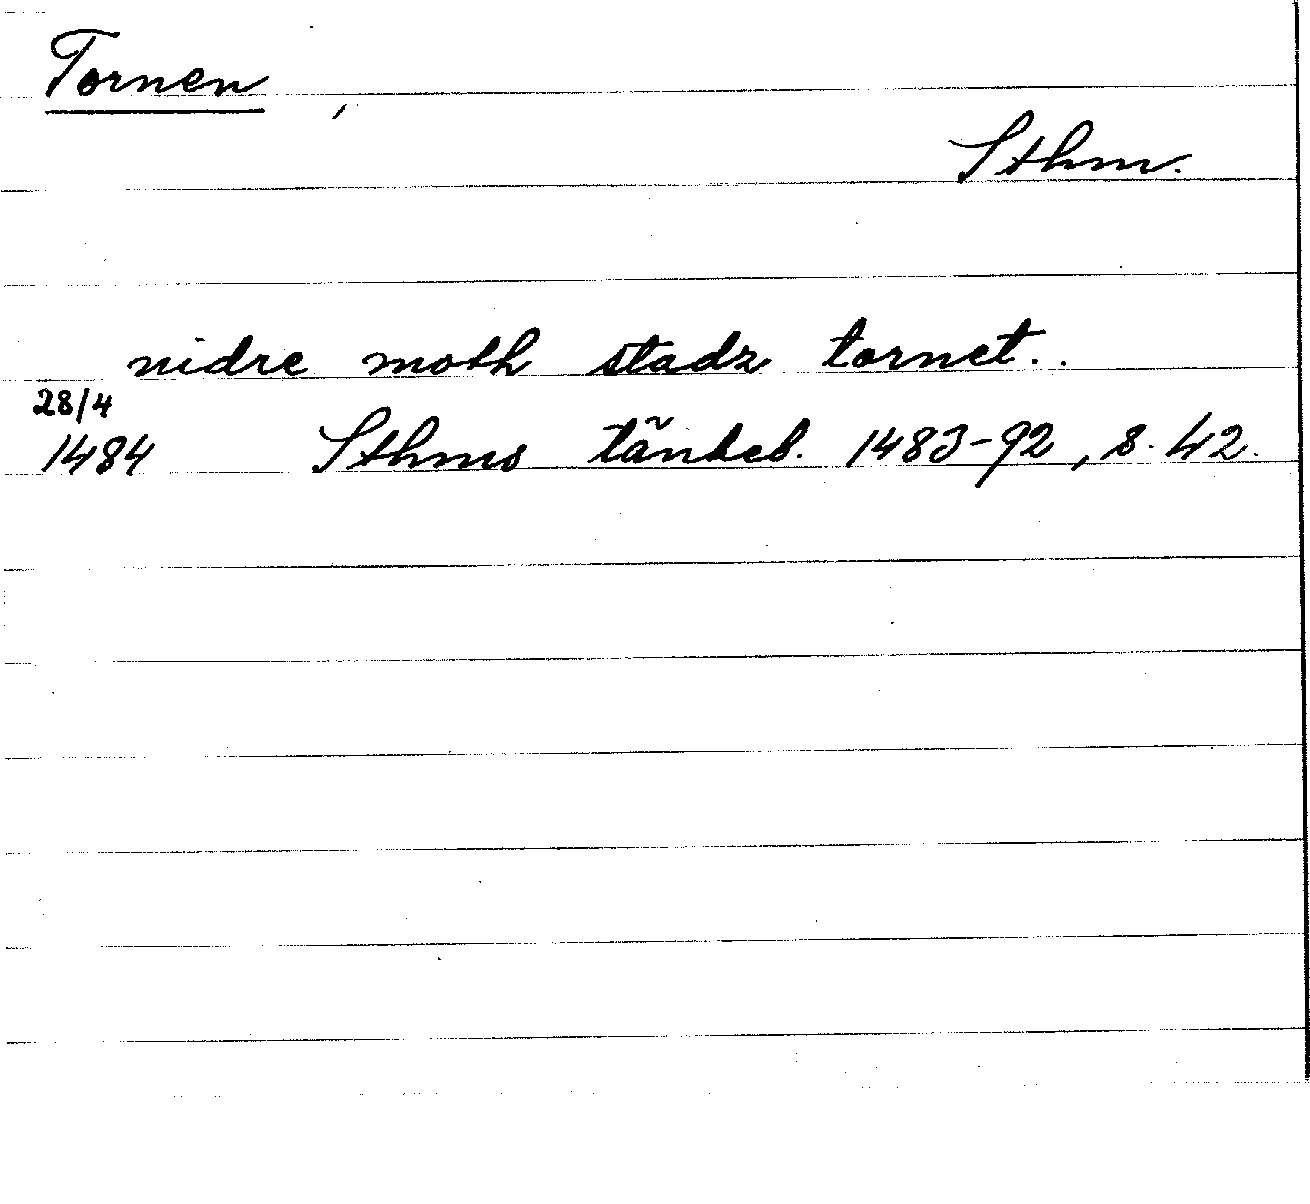 Tornen,
Sthm.
nidre moth stadz tornet..
28/4
1484 Sthms tänkeb. 1483-92, s. 42.